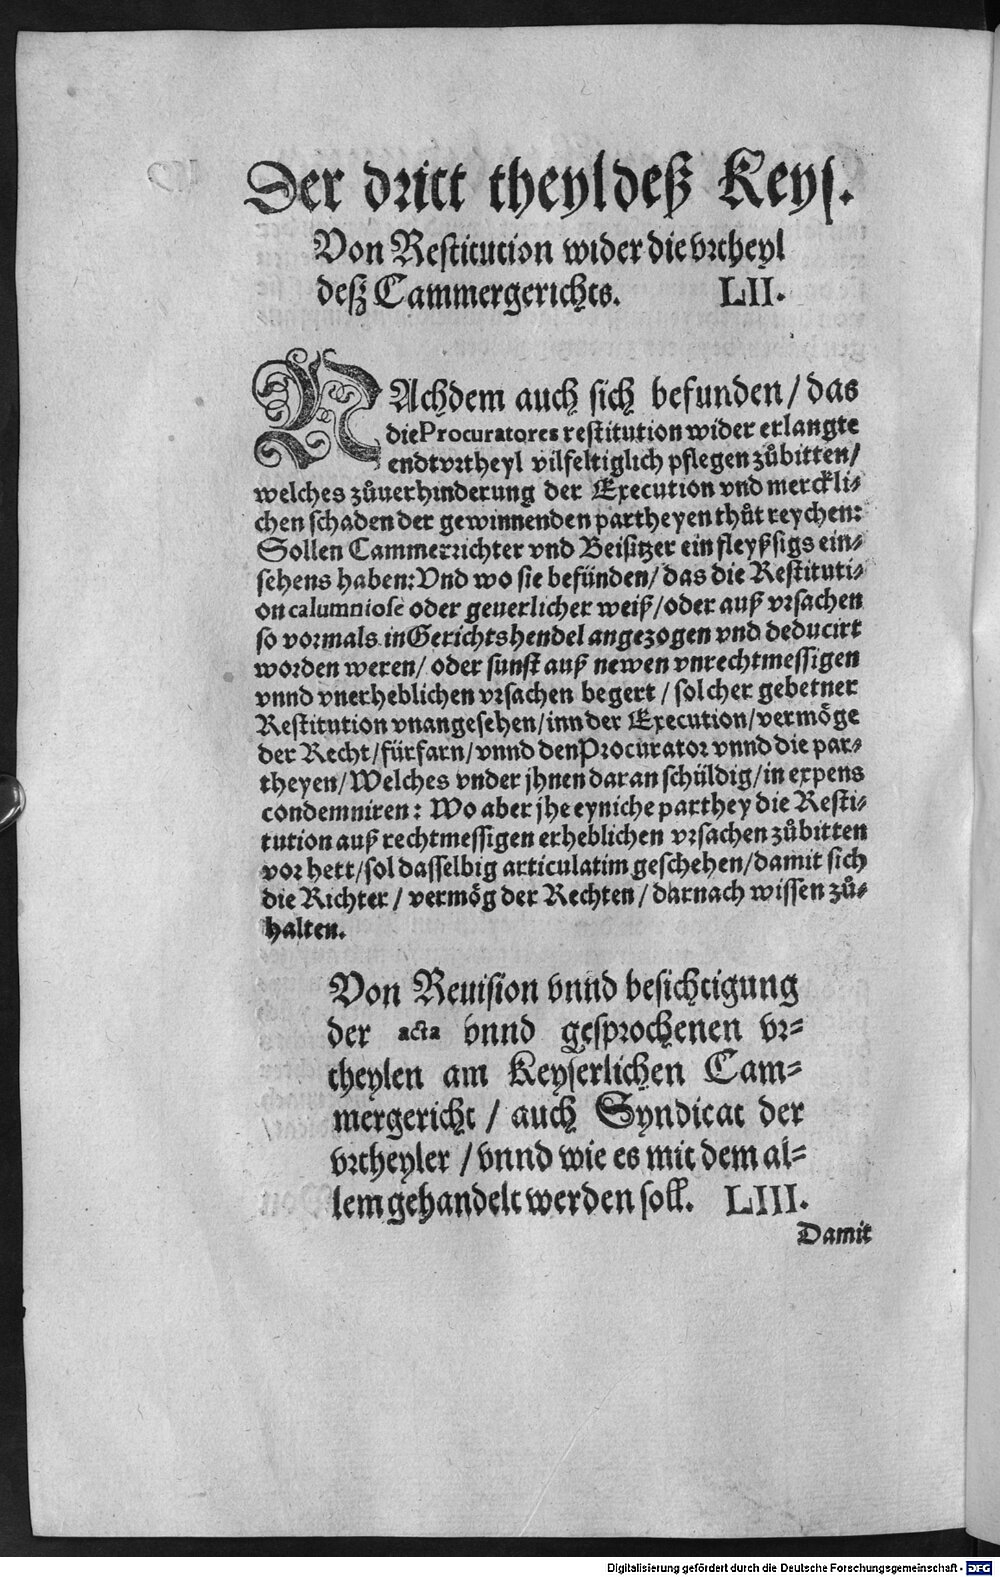 Der dritt theyl deß Keys.
Von Restitution wider die vrtheyl
deß Cammergerichts. LII.
NAchdem auch sich befunden / das
die Procuratores restitution wider erlangte
endtvrtheyl vilfeltiglich pflegen zůbitten /
welches zůuerhinderung der Execution vnd merckli-
chen schaden der gewinnenden partheyen thůt reychen:
Sollen Cammerrichter vnd Beisitzer ein fleyßsigs ein-
sehens haben: Vnd wo sie befünden / das die Restituti-
on calumniose oder geuerlicher weiß / oder auß vrsachen
so vormals in Gerichtshendel angezogen vnd deducirt
worden weren / oder sunst auß newen vnrechtmessigen
vnnd vnerheblichen vrsachen begert / solcher gebetner
Restitution vnangesehen / inn der Execution / vermöge
der Recht / fürfarn / vnnd den Procurator vnnd die par-
theyen / Welches vnder jhnen daran schüldig / in expens
condemniren: Wo aber jhe eyniche parthey die Resti-
tution auß rechtmessigen erheblichen vrsachen zůbitten
vor hett / sol dasselbig articulatim geschehen / damit sich
die Richter / vermög der Rechten / darnach wissen zů-
halten.
Von Reuision vnnd besichtigung
der acta vnnd gesprochenen vr-
theylen am Keyserlichen Cam-
mergericht / auch Syndicat der
vrtheyler / vnnd wie es mit dem al-
lem gehandelt werden soll. LIII.
Damit
Digitalisierung gefördert durch die Deutsche Forschungsgemeinschaft - DFG